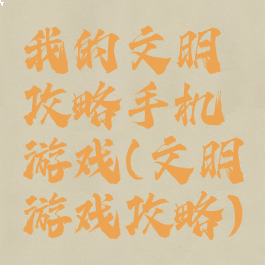 我的文明
攻略手机
游戏(文明
游戏攻略)